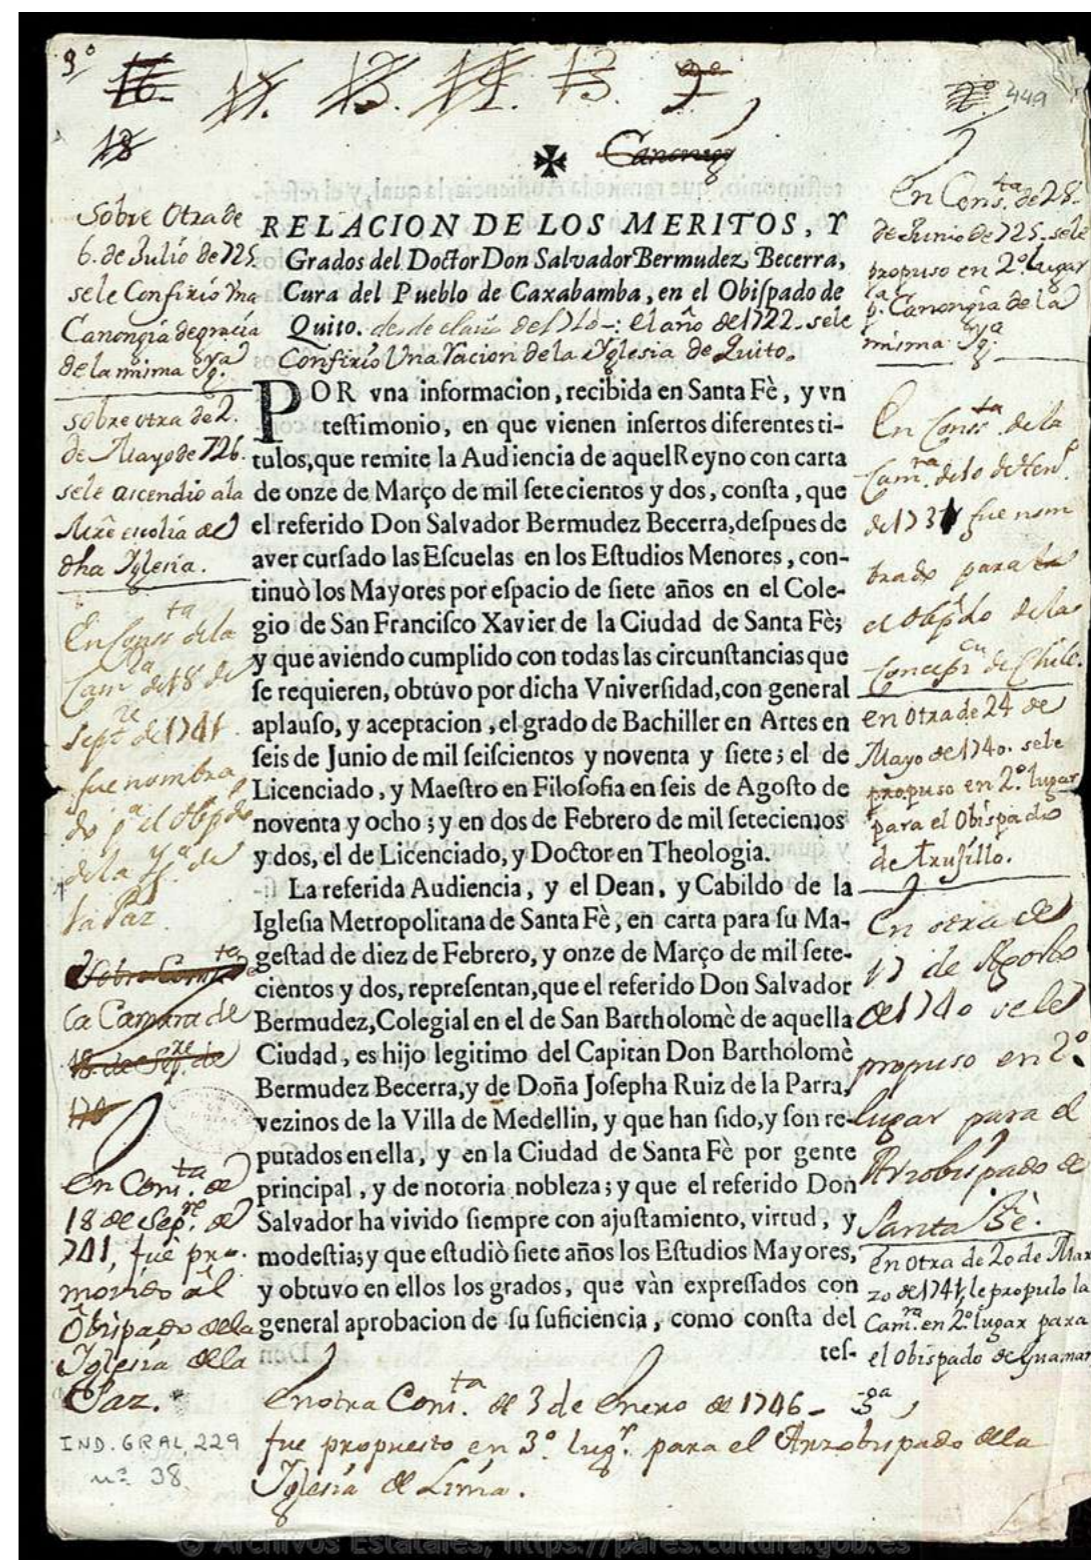 3º
16.
17.
13.
14.
13.
2º
449
18
✠
Canonig
Sobre Otra de
6. de Julio de 725
se le Confirió Una
Canongia de gracia
de la misma Yg.ª
sobre otra de 2.
de Mayo de 726.
se le ascendio a la
dha Yglesia.
En Conss.ta de la
Cam.ra de 18 de
Sept.re de 1741
fue nombra
do p.ª el Obpdo
de la Yg.ª de
la Paz.
Sobre Cons.ta de
la Camara de
18. de Sep.re de
En Cons.ta de
18 de Sep.re de
741, fue pro-
movido al
Obispado de la
Iglesia de la
Paz.
IND. GRAL, 229
nº 38
RELACION DE LOS MERITOS, Y
Grados del Doctor Don Salvador Bermudez Becerra,
Cura del Pueblo de Caxabamba, en el Obiſpado de
Quito. desde el año de 1710-: El año de 1722. se le
Confirió Una Racion de la Yglesia de Quito.
POR vna informacion, recibida en Santa Fè, y vn
teſtimonio, en que vienen inſertos diferentes ti-
tulos, que remite la Audiencia de aquel Reyno con carta
de onze de Março de mil ſetecientos y dos, conſta, que
el referido Don Salvador Bermudez Becerra, deſpues de
aver curſado las Eſcuelas en los Eſtudios Menores, con-
tinuò los Mayores por eſpacio de ſiete años en el Cole-
gio de San Franciſco Xavier de la Ciudad de Santa Fè;
y que aviendo cumplido con todas las circunſtancias que
ſe requieren, obtuvo por dicha Vniverſidad, con general
aplauſo, y aceptacion, el grado de Bachiller en Artes en
ſeis de Junio de mil ſeiſcientos y noventa y ſiete; el de
Licenciado, y Maeſtro en Filoſofia en ſeis de Agoſto de
noventa y ocho; y en dos de Febrero de mil ſetecientos
y dos, el de Licenciado, y Doctor en Theologia.
La referida Audiencia, y el Dean, y Cabildo de la
Igleſia Metropolitana de Santa Fè, en carta para ſu Ma-
geſtad de diez de Febrero, y onze de Março de mil ſete-
cientos y dos, repreſentan, que el referido Don Salvador
Bermudez, Colegial en el de San Bartholomè de aquella
Ciudad, es hijo legitimo del Capitan Don Bartholomè
Bermudez Becerra, y de Doña Joſepha Ruiz de la Parra,
vezinos de la Villa de Medellin, y que han ſido, y ſon re-
putados en ella, y en la Ciudad de Santa Fè por gente
principal, y de notoria nobleza; y que el referido Don
Salvador ha vivido ſiempre con ajuſtamiento, virtud, y
modeſtia; y que eſtudiò ſiete años los Eſtudios Mayores,
y obtuvo en ellos los grados, que vàn expreſſados con
general aprobacion de ſu ſuficiencia, como conſta del
teſ-
En Cons.ta de 28.
de Junio de 725. se le
propuso en 2º lugar
p.ª Canongia de la
misma Yg.ª
En Conss.ta de la
fue nom
brado para
el Obpdo de la
Concep.cn de Chile.
en Otra de 24 de
Mayo de 1740. se le
propuso en 2º lugar
para el Obispado
de Truxillo.
En otra de
17 de Agosto
de 1740 se le
propuso en 2º
lugar para el
Arzobispado de
Santa Fè.
en Otra de 20 de Mar
zo de 1741, le propuso la
Cam.ra en 2º lugar para
el Obispado de Guaman
ga
en otra Cons.ta de 3 de Enero de 1746-
fue propuesto en 3º lug.r para el Arzobispado de la
Yglesia de Lima.
© Archivos Estatales, https://pares.cultura.gob.es